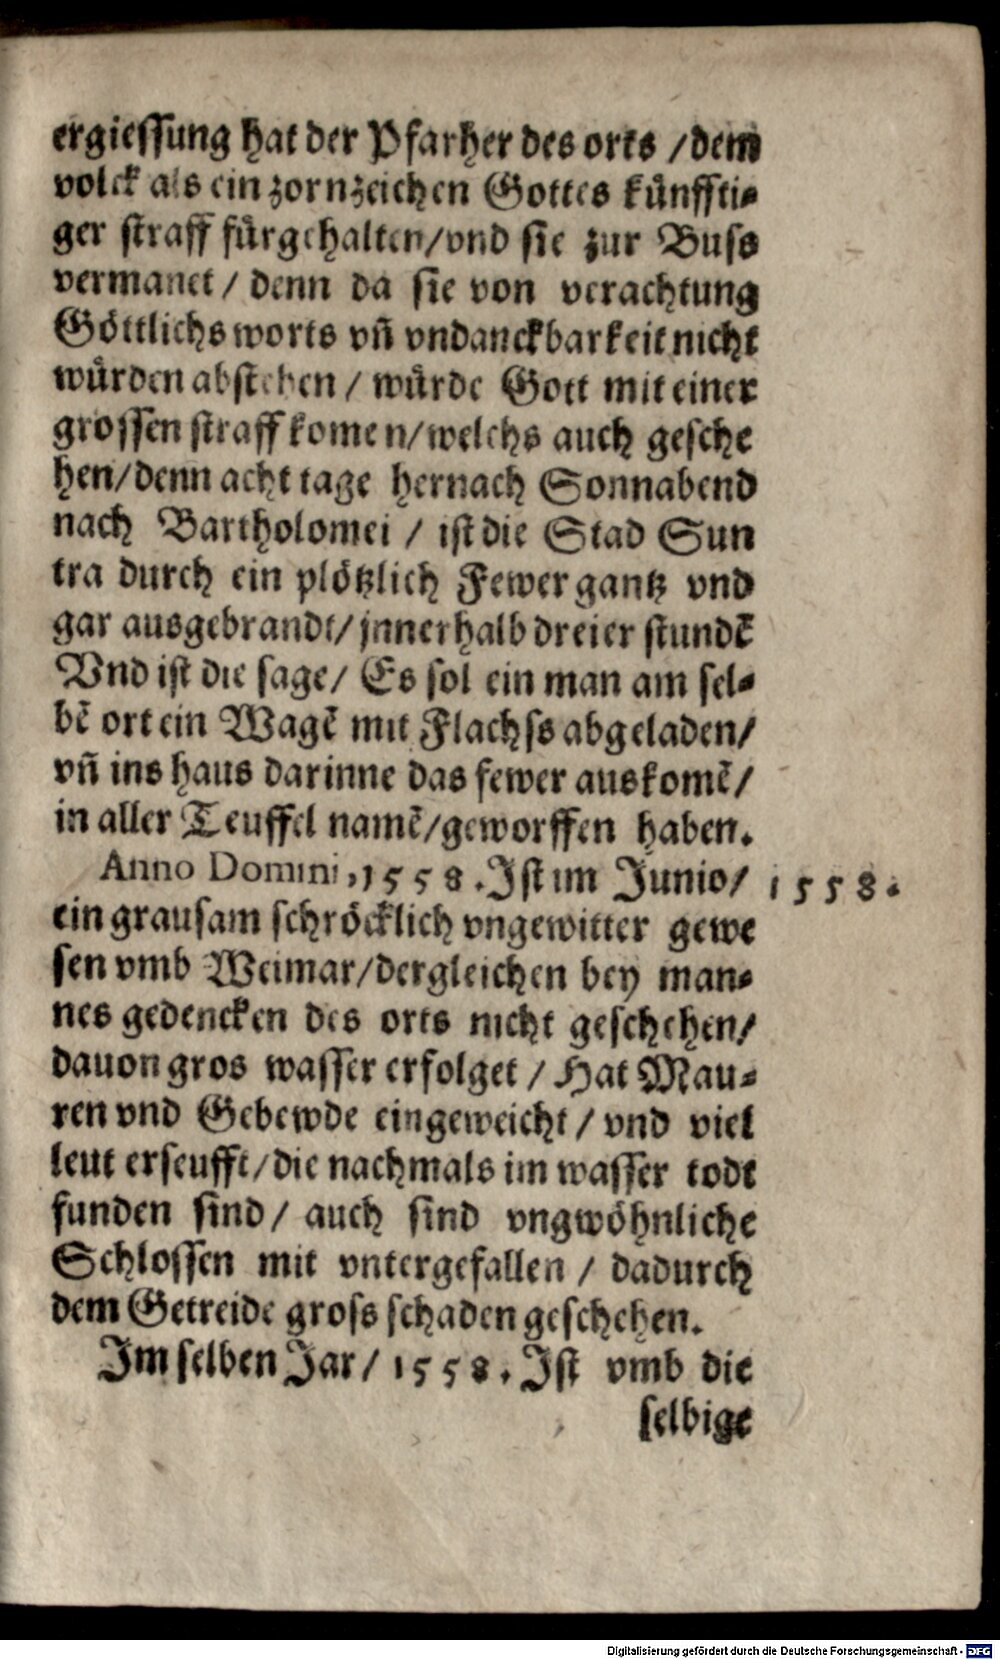 ergiessung hat der Pfarher des orts /dem
volck als ein zornzeichen Gottes künffti-
ger straff fürgehalten/vnd sie zur Buss
vermanet / denn da sie von verachtung
Göttlichs worts vñ vndanckbarkeit nicht
würden abstehen / würde Gott mit einer
grossen straff komen/welchs auch gesche
hen/denn acht tage hernach Sonnabend
nach Bartholomei / ist die Stad Sun
tra durch ein plötzlich Fewer gantz vnd
gar ausgebrandt/jnnerhalb dreier stundē
Vnd ist die sage/ Es sol ein man am sel-
bē ort ein Wagē mit Flachss abgeladen/
vñ ins haus darinne das fewer auskomē/
in aller Teuffel namē/geworffen haben.
Anno Domini, 1558. Ist im Junio/ 1558.
ein grausam schröcklich vngewitter gewe
sen vmb Weimar/dergleichen bey man-
nes gedencken des orts nicht geschehen/
dauon gros wasser erfolget / Hat Mau-
ren vnd Gebewde eingeweicht / vnd viel
leut erseufft/die nachmals im wasser todt
funden sind/ auch sind vngwöhnliche
Schlossen mit vntergefallen / dadurch
dem Getreide gross schaden geschehen.
Im selben Jar/ 1558. Ist vmb die
selbige
Digitalisierung gefördert durch die Deutsche Forschungsgemeinschaft - DFG